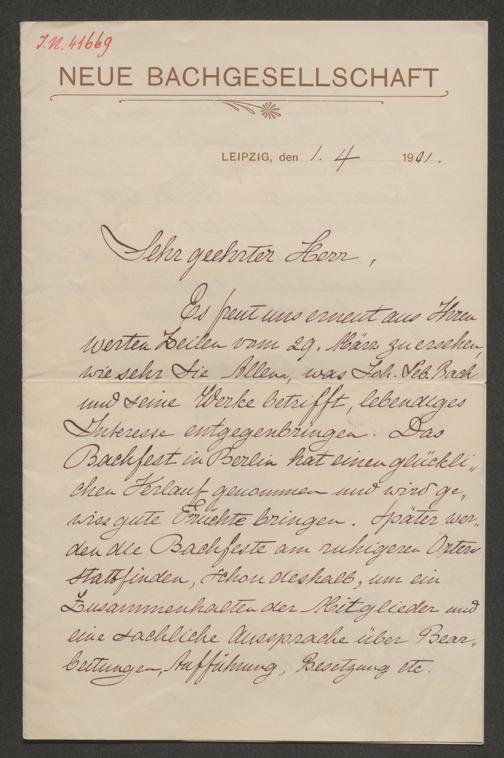 J.N. 41669
NEUE BACHGESELLSCHAFT
LEIPZIG, den 1. 4 1901.
Sehr geehrter Herr,
Es freut uns erneut aus Ihren
werten Zeilen vom 29. März zu ersehen,
wie sehr Sie Allem, was Joh. Seb. Bach
und seine Werke betrifft, lebendiges
Interesse entgegenbringen. Das
Bachfest in Berlin hat einen glückli-
chen Verlauf genommen und wird ge-
wiss gute Früchte bringen. Später wer-
den die Bachfeste an ruhigeren Orten
stattfinden, schon deshalb, um ein
Zusammenhalten der Mitglieder und
eine sachliche Aussprache über Bear-
beitungen, Aufführung, Besetzung etc.